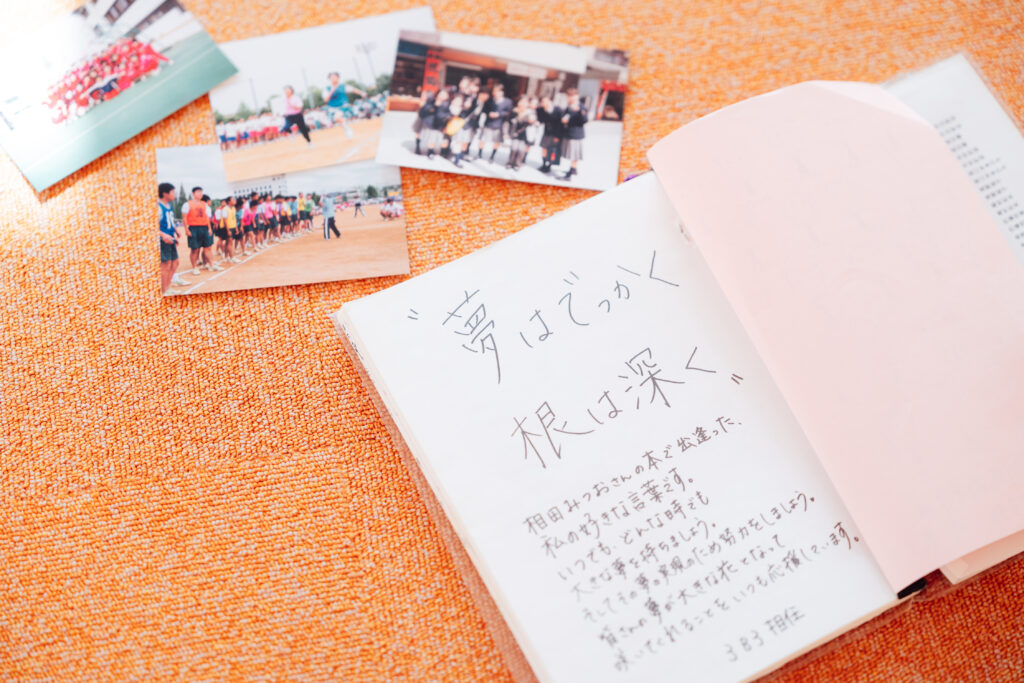 "夢はでっかく
根は深く"
相田みつおさんの本で出逢った、
私の好きな言葉です。
いつでも、どんな時でも
大きな夢を持ちましょう。
そしてその夢の実現のため努力をしましょう。
皆さんの夢が大きな花となって
咲いてくれることをいつも応援しています。
383 担任